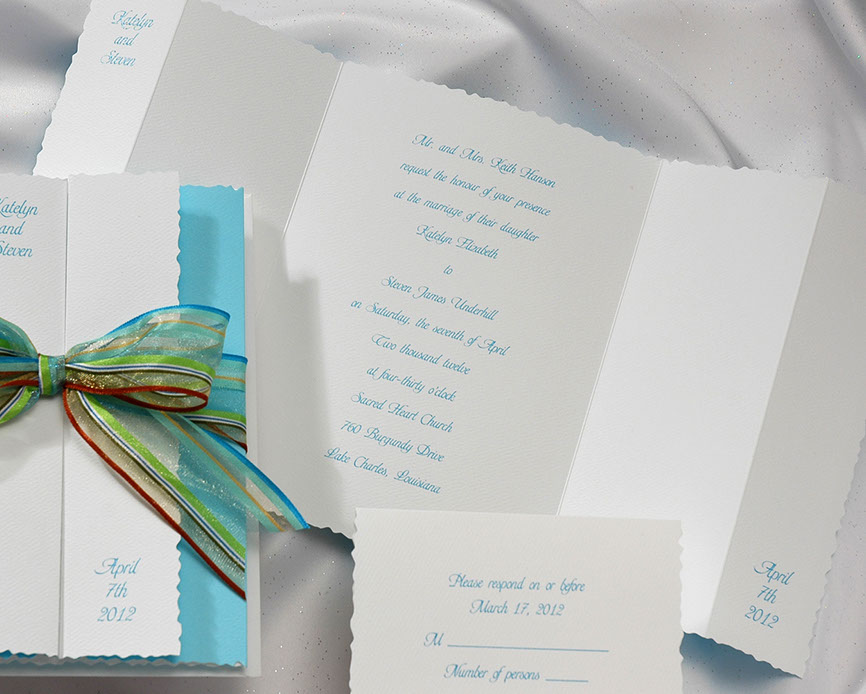 Katelyn
and
Steven
Mr. and Mrs. Keith Hanson
request the honour of your presence
at the marriage of their daughter
Katelyn Elizabeth
to
Steven James Underhill
on Saturday, the seventh of April
Two thousand twelve
at four-thirty o'clock
Sacred Heart Church
760 Burgundy Drive
Lake Charles, Louisiana
April
7th
2012
Katelyn
and
Steven
April
7th
2012
Please respond on or before
March 17, 2012
M
Number of persons